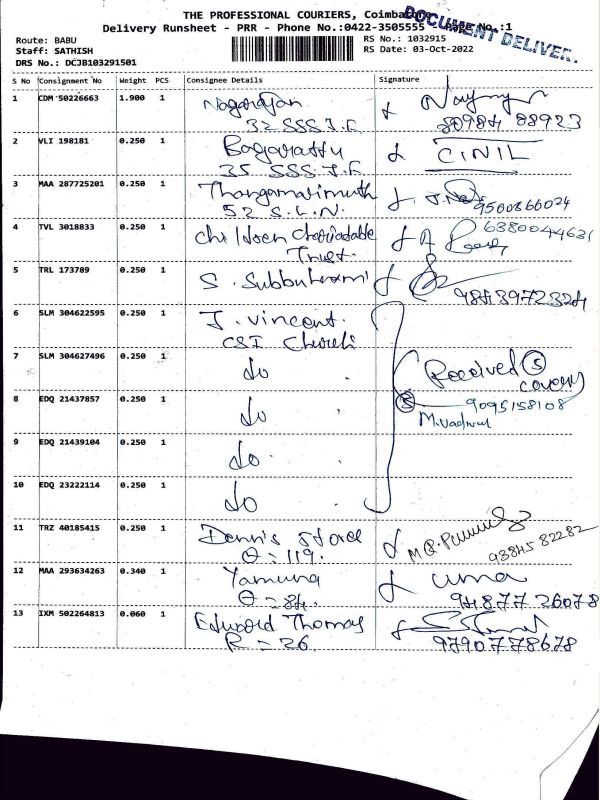 THE PROFESSIONAL COURIERS, Coimba
DOCUMENT DELIVER.
Delivery Runsheet - PRR - Phone No.:0422-3505555 No.:1
Route: BABU
RS No.: 1032915
Staff: SATHISH
RS Date: 03-Oct-2022
DRS No.: DCJB103291501
S No Consignment No Weight PCS Consignee Details Signature
1 CDM 50226663 1.900 1 Nagarajan
32 SSS I.F 80984 88923
2 VLI 198181 0.250 1 CINIL
35 SSS I.F
3 MAA 287725201 0.250 1 Thangamarimuth
52 S.L.N. 9500866024
4 TVL 3018833 0.250 1 Children Charitable 6380044631
Trust.
5 TRL 173789 0.250 1 S. Subbulaxmi
9843972324
6 SLM 304622595 0.250 1 J. Vincent.
CSI Church
7 SLM 304627496 0.250 1 do Received (5)
8 EDQ 21437857 0.250 1 do 9095158108
9 EDQ 21439104 0.250 1 do.
10 EDQ 23222114 0.250 1 do
11 TRZ 40185415 0.250 1 Dennis Store
Θ : 119. 93845 82282
12 MAA 293634263 0.340 1 Yamuna uma
Θ = 84. 94877 26078
13 IXM 502264813 0.060 1 Edward Thomas
R = 26. 9790778678